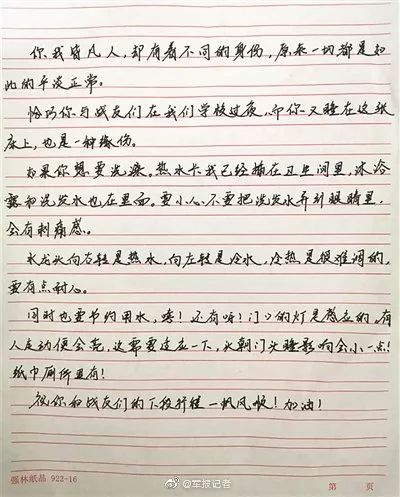 你我皆凡人,却有着不同的身份,原来一切都是如
此的平淡正常。
恰巧你与战友们在我们学校过夜,而你又睡在这张
床上,也是一种缘份。
如果你想要洗澡。热水卡我已经插在卫生间里,沐浴
露和洗发水也在里面。要小心不要把洗发水弄到眼睛里,
会有刺痛感。
水龙头向右转是热水,向左转是冷水,冷热是很难调的,
要有点耐心。
同时也要节约用水,噢!还有呀!门口的灯是感应的,有
人走动便会亮,这需要适应一下,头朝门头睡影响会小一点!
纸巾厕所里有!
祝你和战友们的下段行程一帆风顺!加油!
强林纸品 922-16
第 页
@军报记者